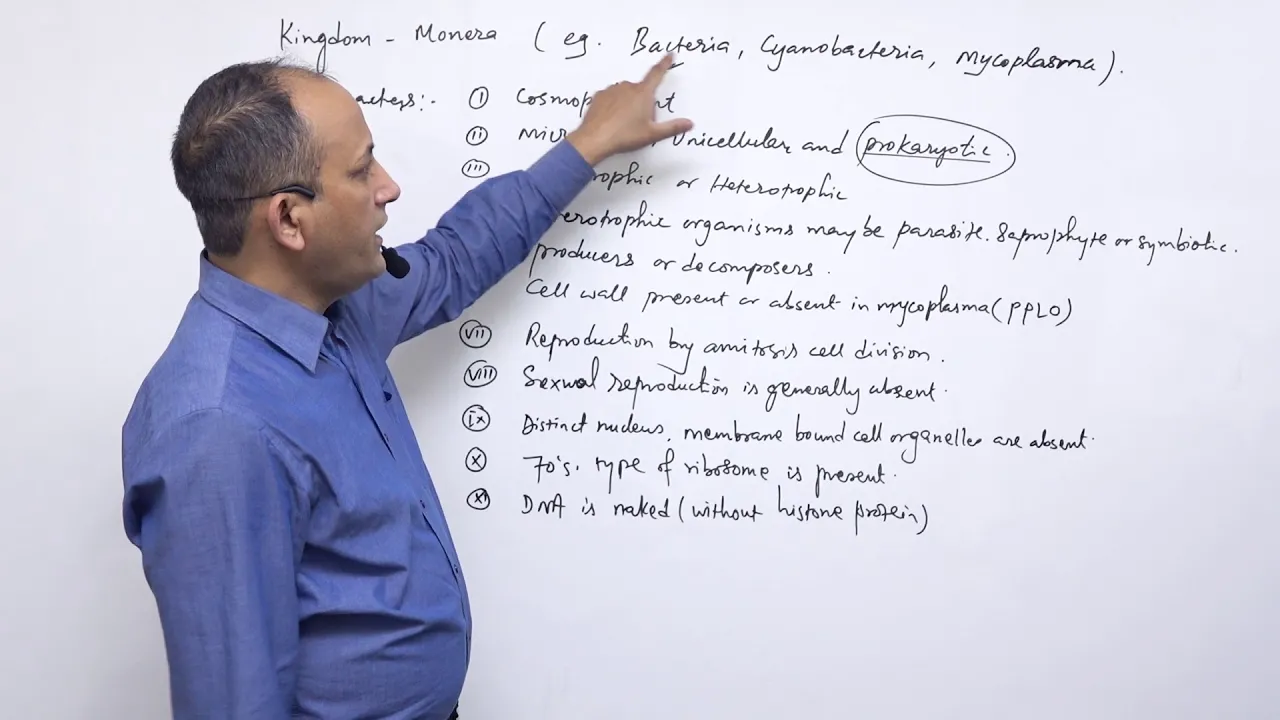 Kingdom - Monera ( eg. Bacteria, Cyanobacteria, Mycoplasma).
:- (i)
(ii) Unicellular and prokaryotic.
(iii) or Heterotrophic
organisms may be parasite. Saprophyte or symbiotic.
producers or decomposers.
Cell wall present or absent in mycoplasma (PPLO)
(vii) Reproduction by amitosis cell division.
(viii) Sexual reproduction is generally absent.
(ix) Distinct nucleus, membrane bound cell organelles are absent.
(x) 70's. type of ribosome is present.
(xi) DNA is naked (without histone protein)